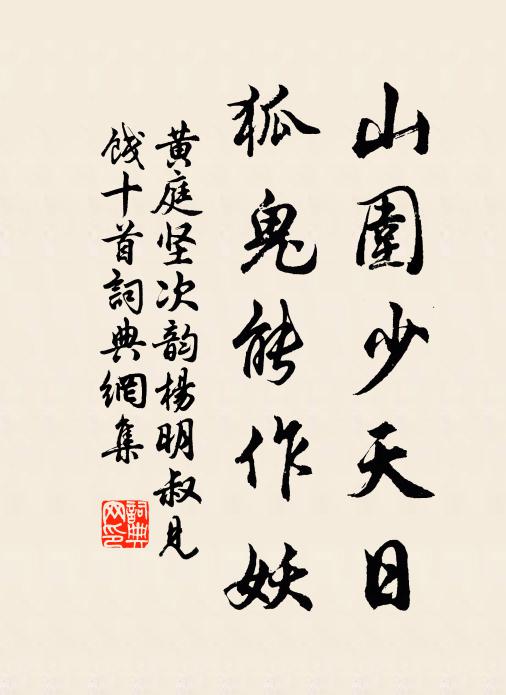 山圍少天日
狐鬼能作妖
黄庭坚次韵楊明叔見
餞十首詞典網集
詞典
网印